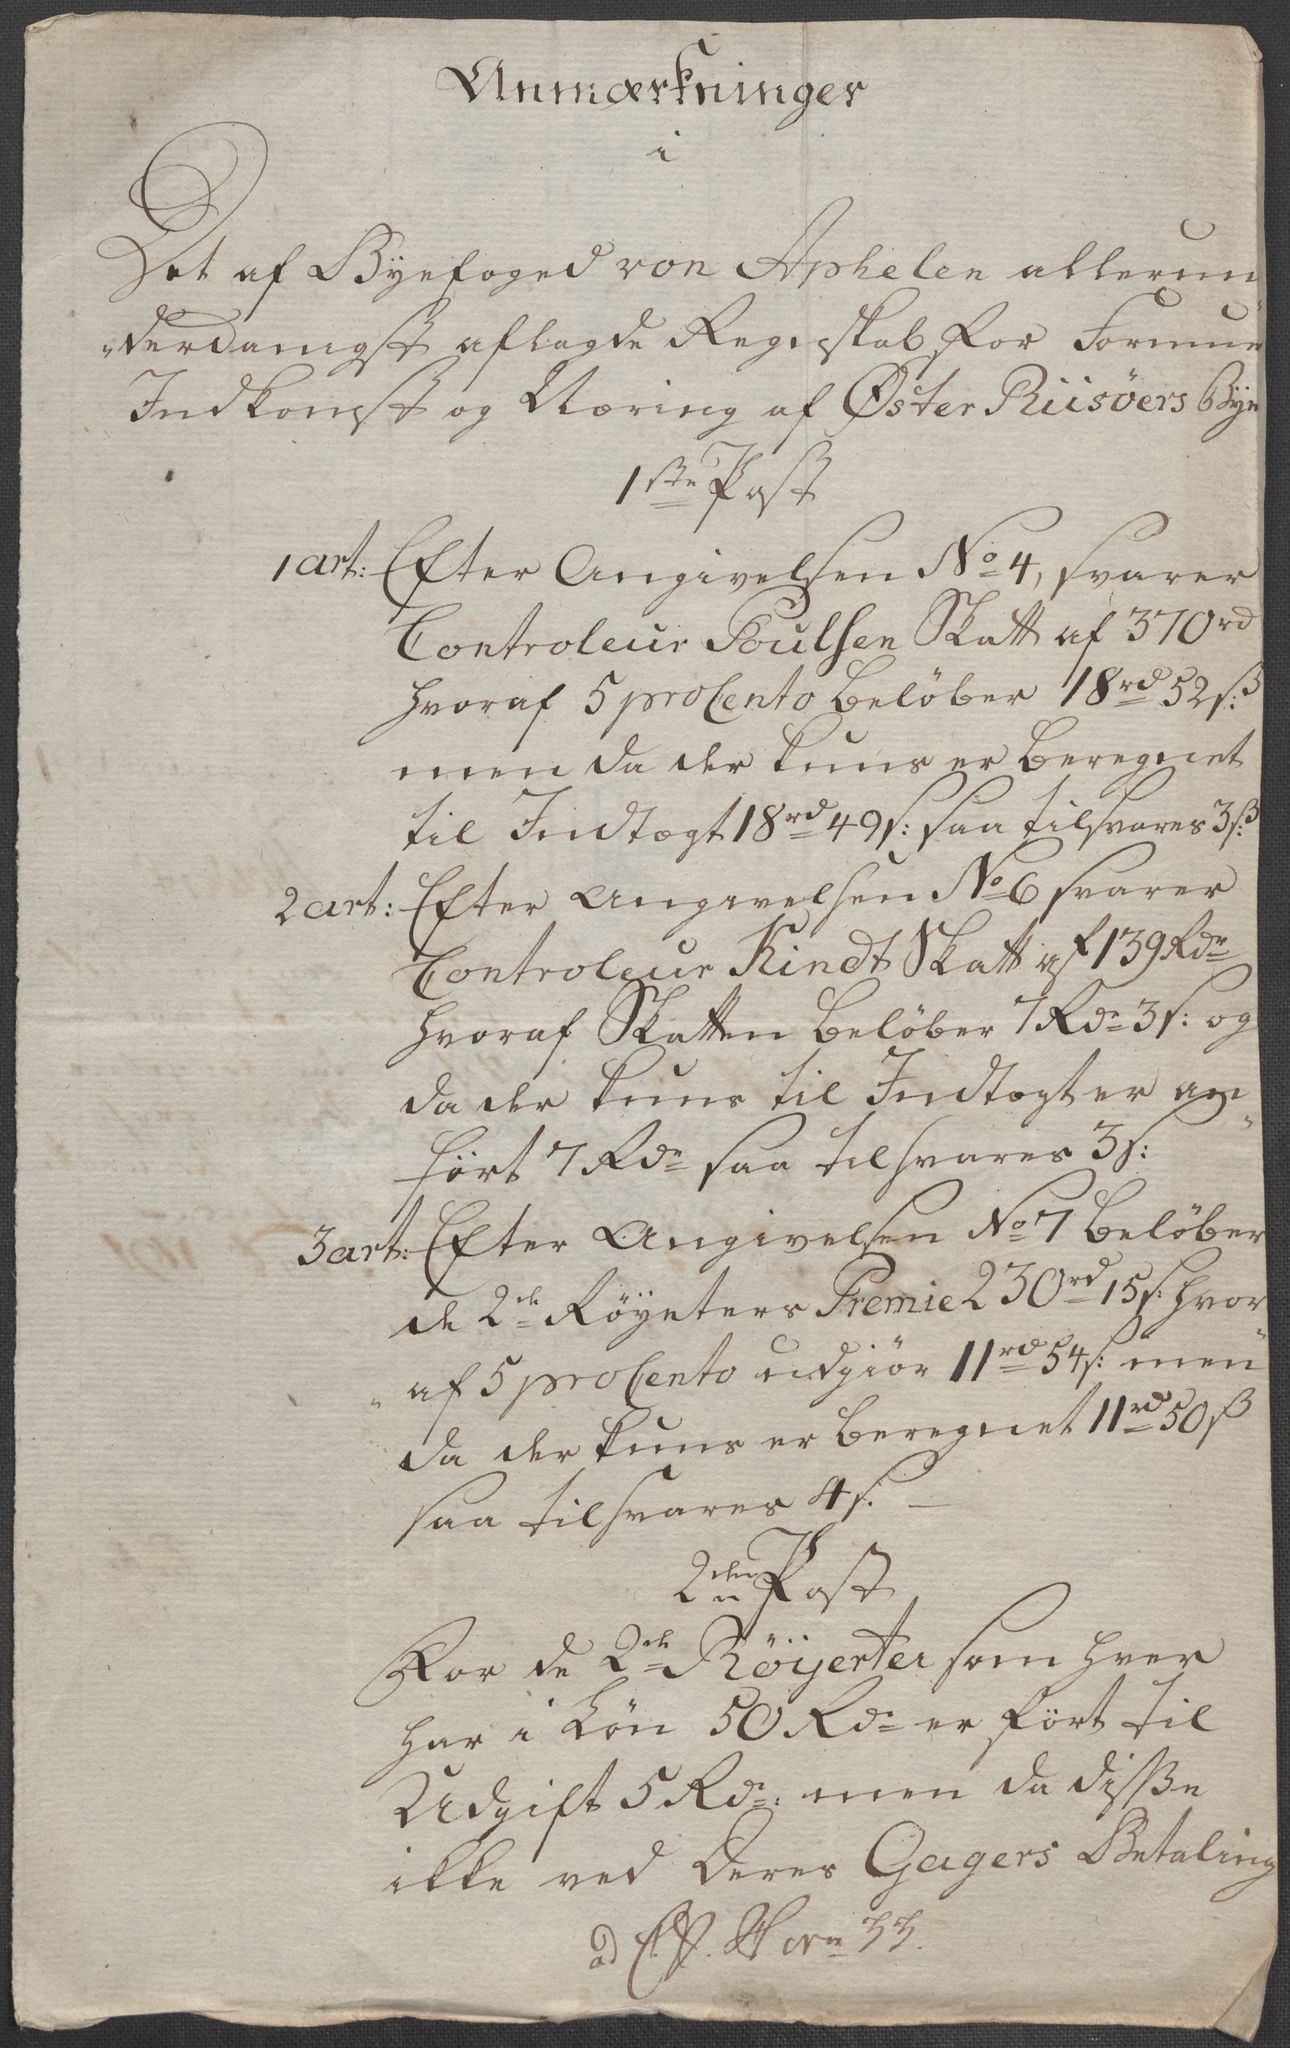 Anmærkninger
i
Det af Byefoged von Aphelen allerun
„derdanigst aflagde Regnskab for Formue
Indkomst og Næring af Øster Riisöers Bye
1ste Post
1 art: Efter Angivelsen No 4, svarer
Controleur Poulsen Skatt af 370 rd
hvoraf 5 proCento belöber 18 rd 52 s:
men da der kuns er beregnet
til Indtægt 18 rd 49 s: saa tilsvares 3 s:
2 art: Efter Angivelsen No 6 svarer
Controleur Kindt Skatt af 139 Rdr
hvoraf Skatten belöber 7 Rdr 3 s: og
da der kuns til Indtægt er an„
fört 7 Rdr saa tilsvares 3 s:
3 art: Efter Angivelsen No 7 belöber
de 2de Röyerters Premie 230 rd 15 s: hvor„
„af 5 proCento udgiör 11 rd 54 s: men
da der kuns er beregnet 11 rd 50 s
saa tilsvares 4 s. —
2den Post
For de 2de Röyerter som hver
har i Løn 50 Rdr er fört til
Udgift 5 Rdr: men da disse
ikke ved deres Gagers Betaling